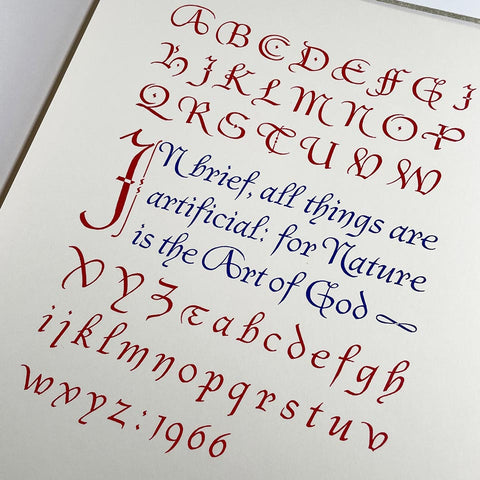 A B C D E F G I
H J K L M N O P
Q R S T U V W
IN brief, all things are
artificial: for Nature
is the Art of God
X Y Z & a b c d e f g h
i j k l m n o p q r s t u v
w x y z : 1966